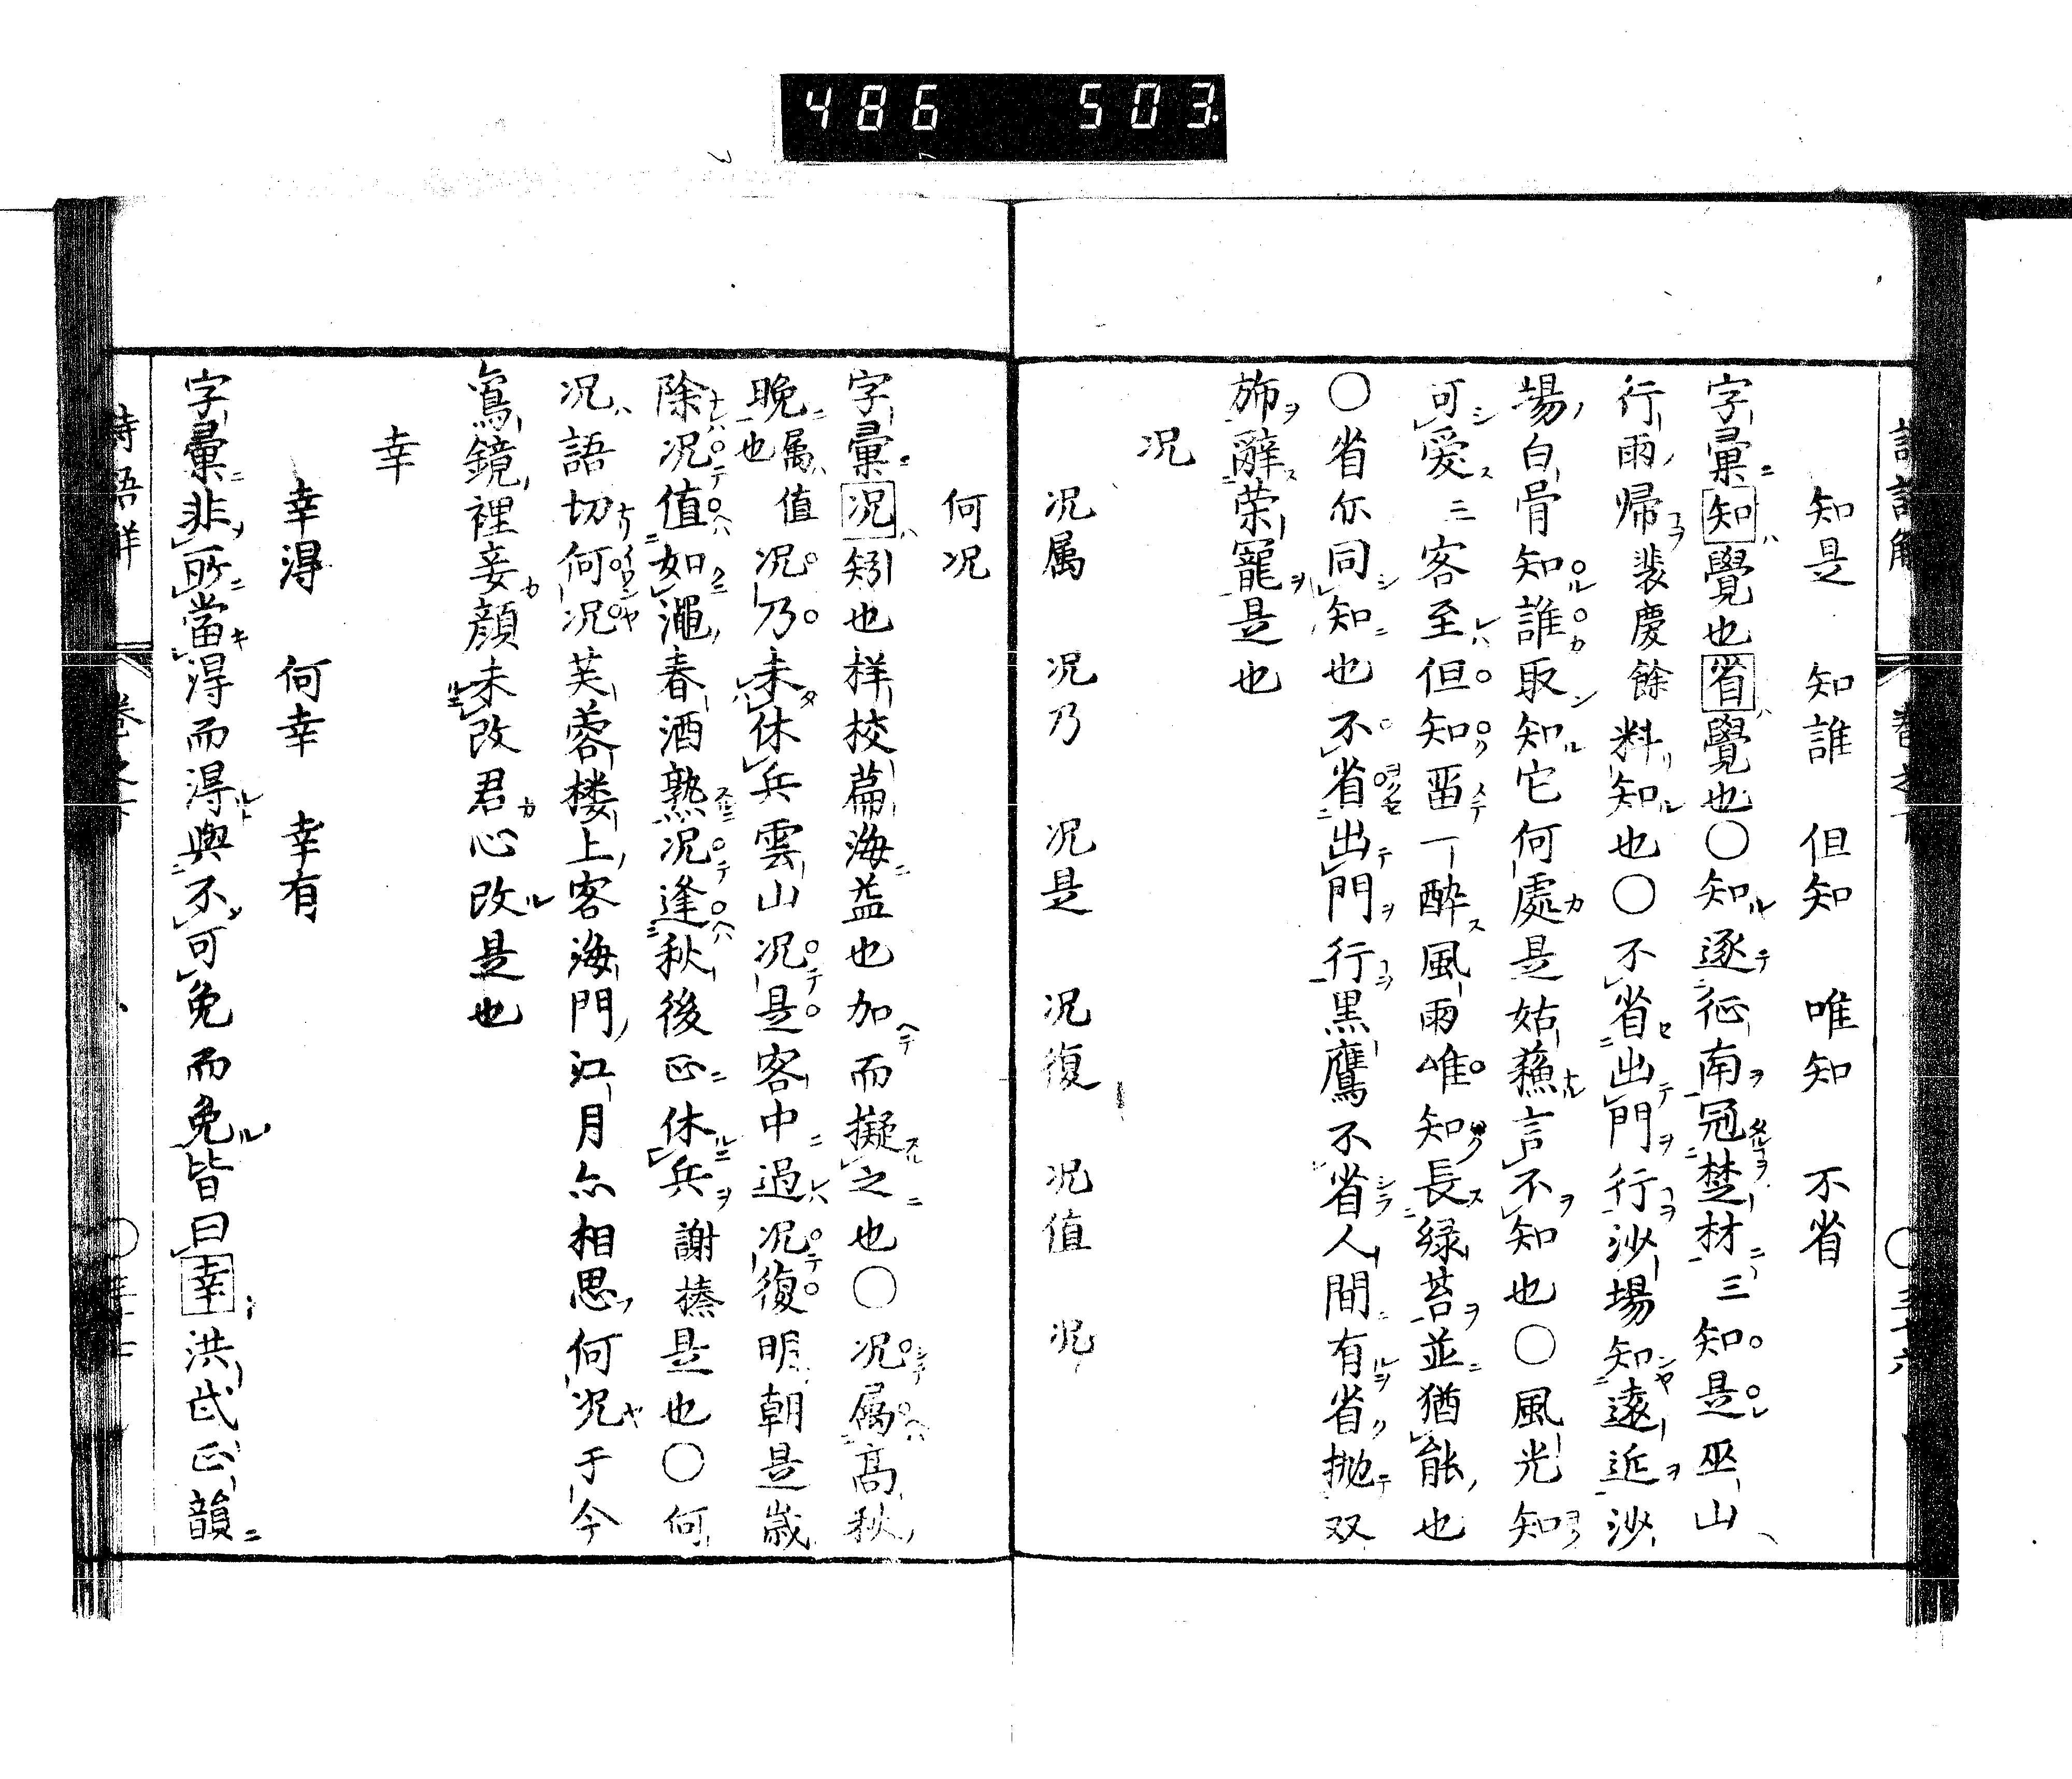 486 503
知是 知誰 但知 唯知 不省
字彙知覺也省覺也〇知逐征南冠楚材 三知是巫山
行雨帰 裴慶餘 料知也〇不省出門行沙場知遠近沙
場白骨知誰取知它何處是姑蘓言不知也〇風光知
可愛 三客至但知畱一酔風雨唯知長緑苔並猶能也
〇省尓同知也 不省出門行黒鷹不省人間有省抛双
斾辭荣寵是也
况
况属 况乃 况是 况復 况値 况
何况
字彙况矧也样校萹海益也加而擬之也〇况属高秋
晩也 属値 况乃未休兵雲山况是客中過况復明朝是歳
除况値如澠春酒熟况逢秋後正休兵 謝榛 是也〇何
况語切何况芙蓉楼上客海門江月亦相思何况于今
鸞鏡裡妾顔未改君心改是也
幸
幸淂 何幸 幸有
字彙非所當淂而淂與不可免而免皆曰幸洪武正韻